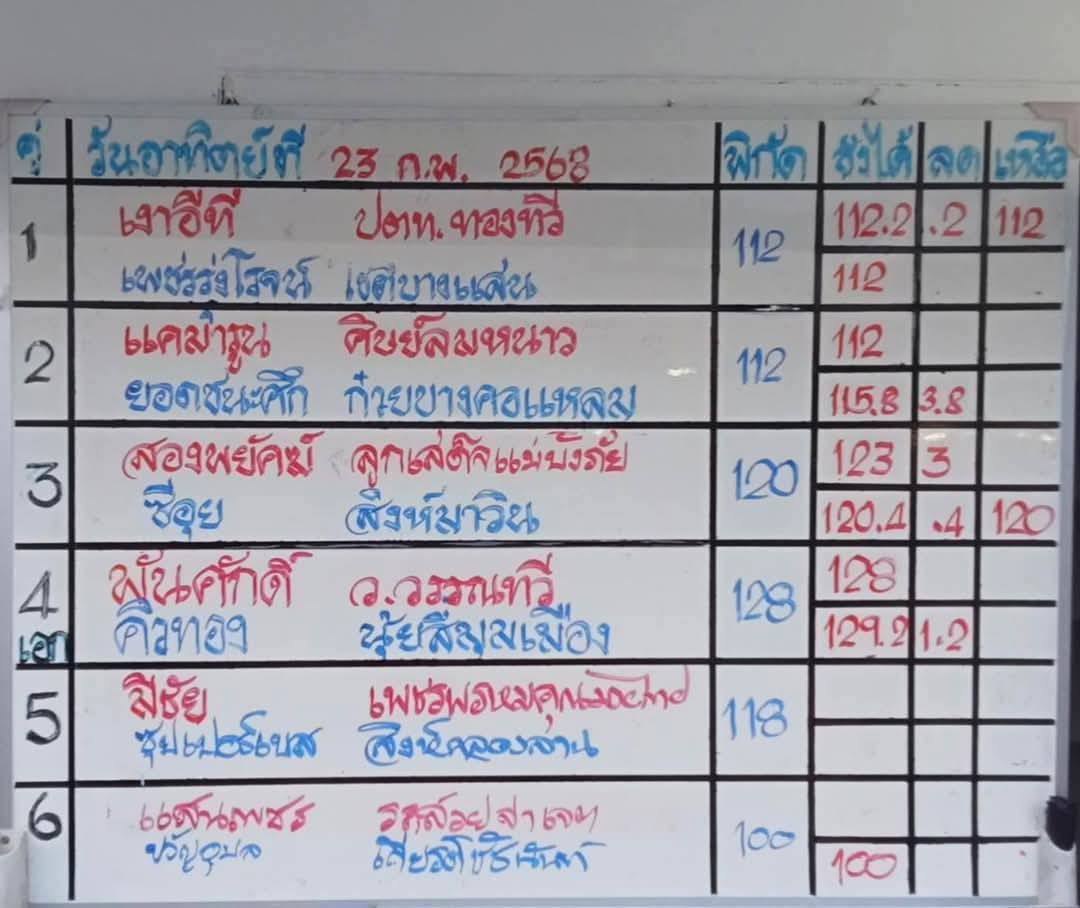 คู่ วันอาทิตย์ที่ 23 ก.พ. 2568 พิกัด ชั่งได้ ลด เหลือ
1 เงาอีที ปตท.ทองทวี 112 112.2 .2 112
เพชรรุ่งโรจน์ เขตบางแสน 112
2 แคมารูน ศิษย์ลมหนาว 112 112
ยอดชนะศึก ก๋วยบางคอแหลม 115.8 3.8
3 สองพยัคฆ์ ลูกเสด็จแม่บังภัย 120 123 3
ซีอุย สิงห์มาวิน 120.4 .4 120
4 พันศักดิ์ ว.วรรณทวี 128 128
เอก คิวทอง นุ้ยสี่มุมเมือง 129.2 1.2
5 มีชัย เพชรพรหมคุณ 118
ซุปเปอร์เบส สิงห์คลองสาน
6 แสนเพชร 100
ขวัญอุบล 100